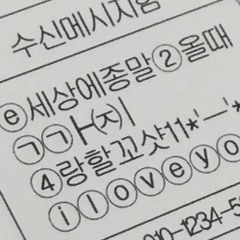 수신메시지함
ⓔ세상에종말②올때
㉠㉠ㅏ㈈ㅣ
④랑할꼬샷11*'―'*
ⓘⓛⓞⓥⓔⓨⓞ
010-1234-5